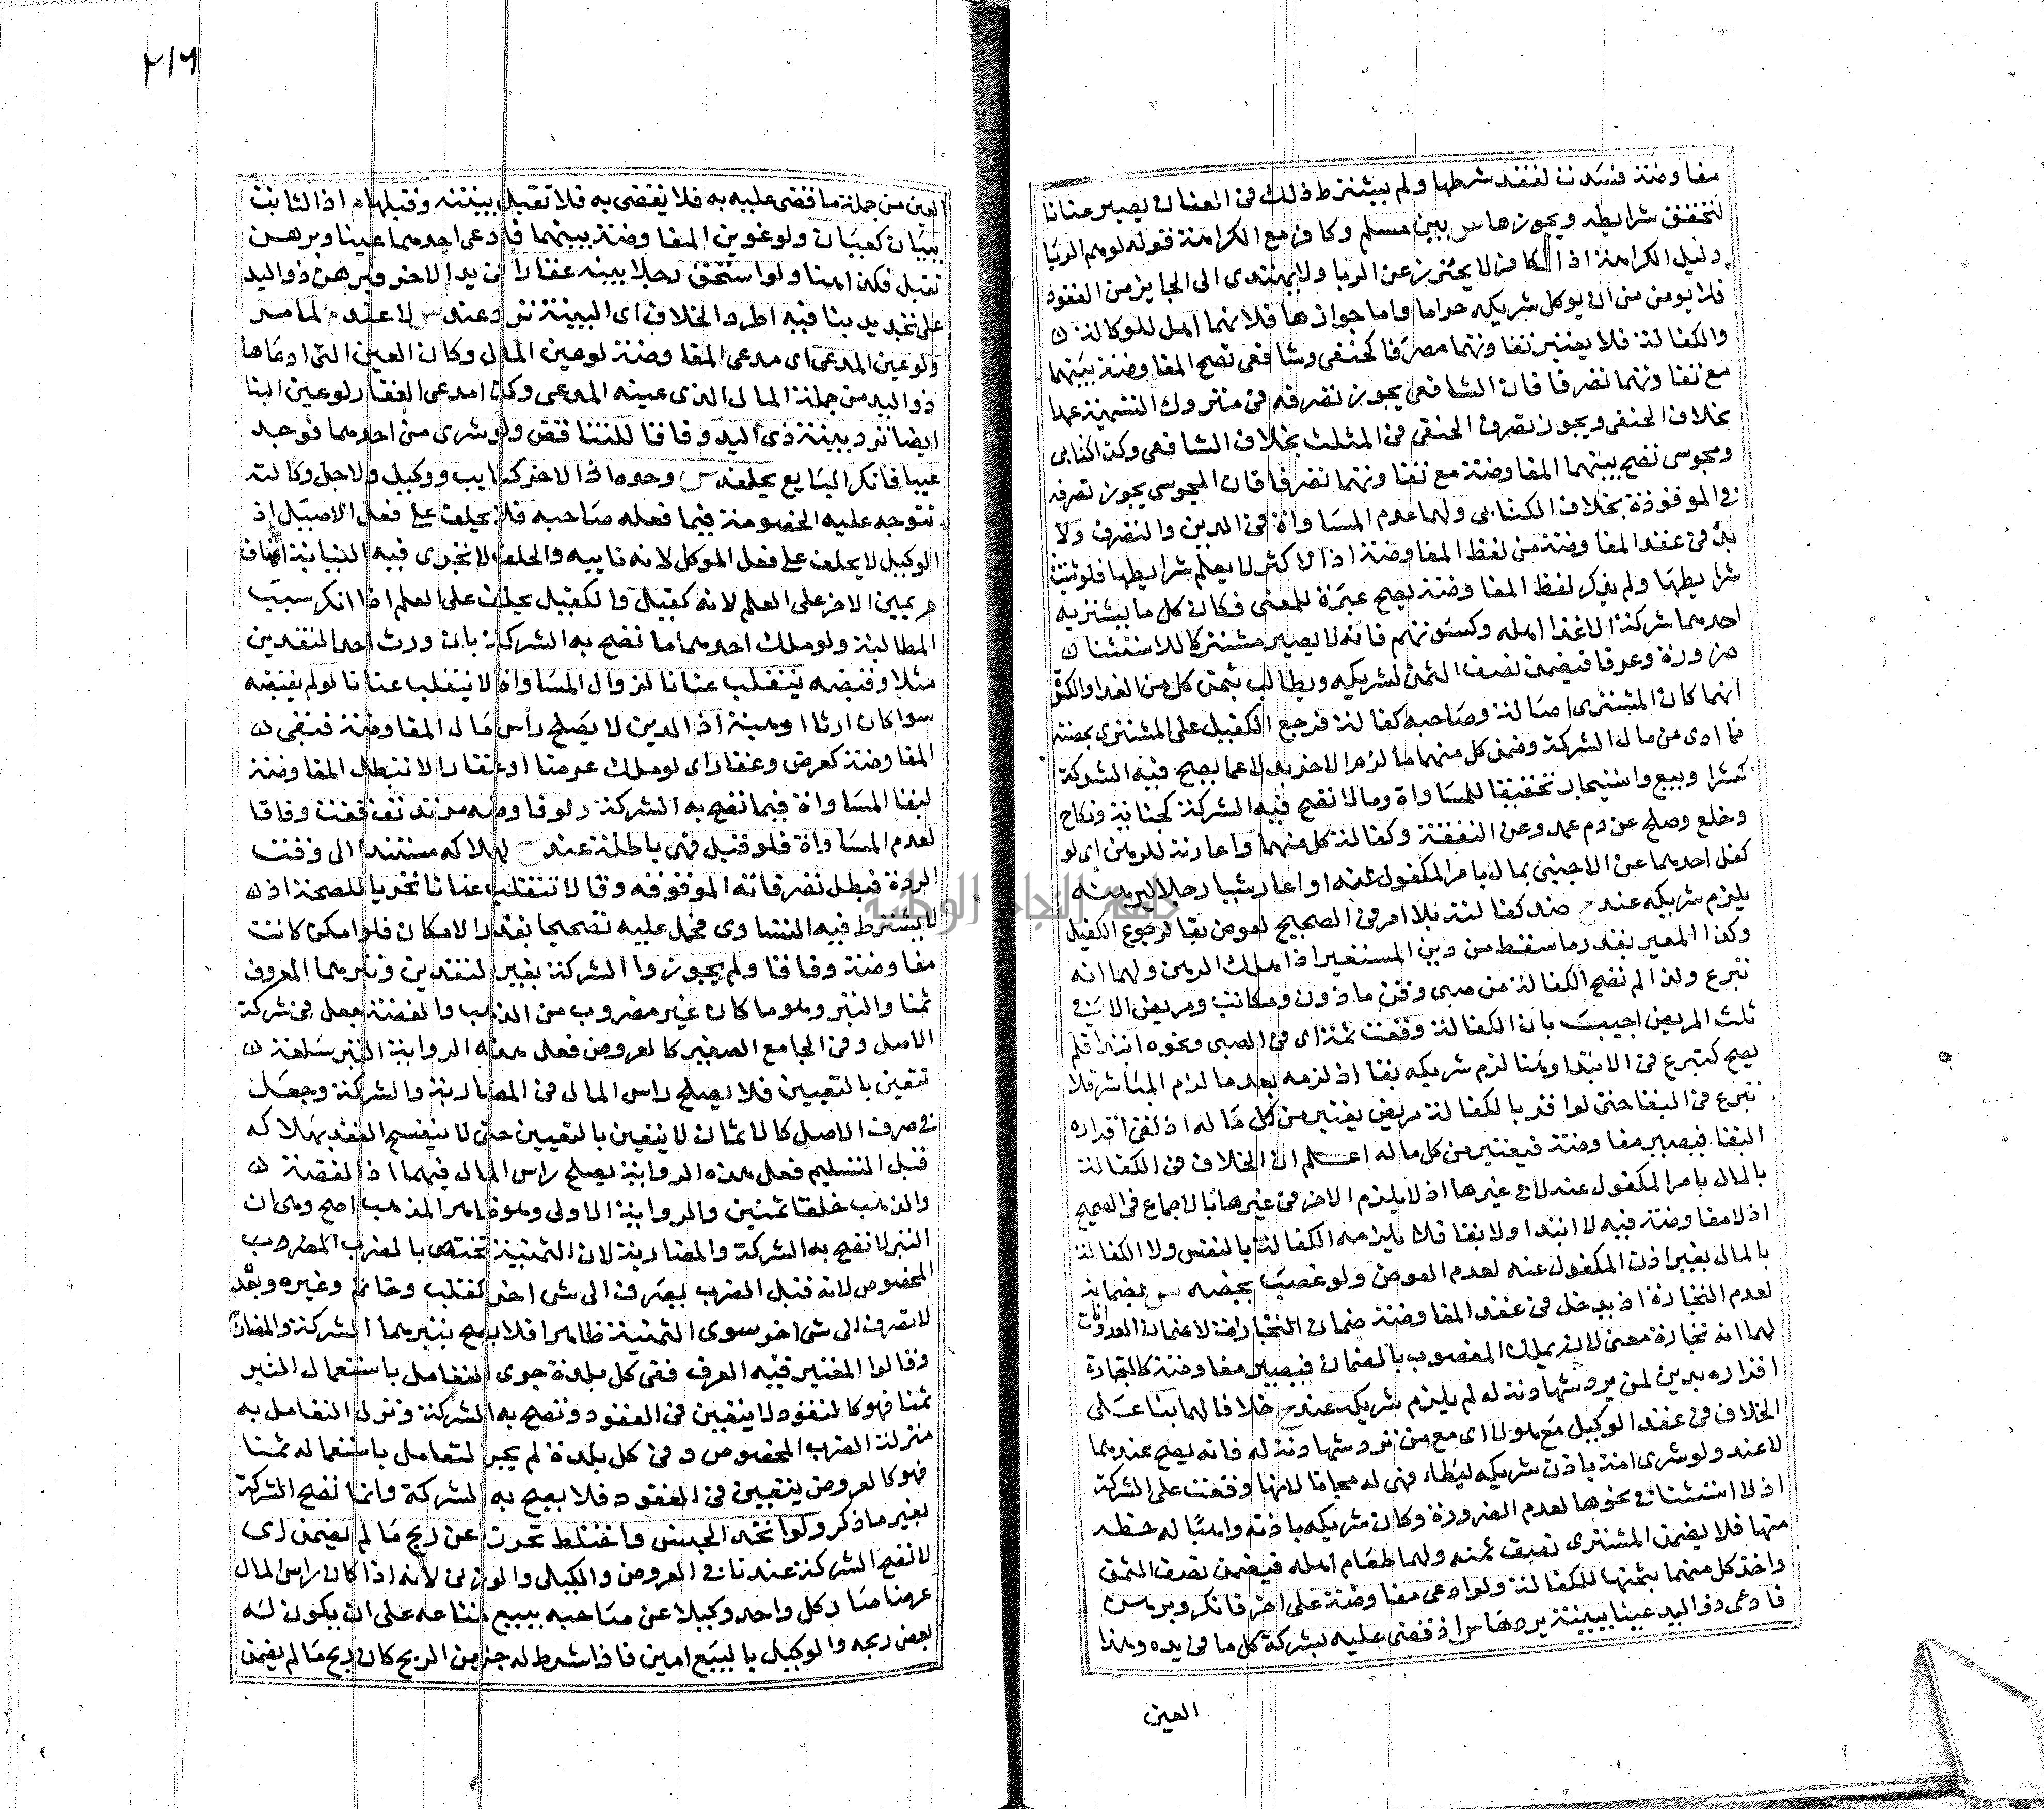 مفاوضة فسدت لفقد شرطها ولم يشترط ذلك في العنان يصير عنانا
لتحقق شرايطه ويجوزها س بين مسلم وكافر مع الكراهة قوله لوهم الربا
دليل الكراهة اذ الكافر لا يحترز عن الربا ولا يهتدى الى الجايز من العقود
فلا يومن من ان يوكل شريكه حراما واما جوازها فلانهما اهل للوكالة
والكفالة فلا يعتبر تفاوتهما مصرفا كحنفي وشافعي تصح المفاوضة بينهما
مع تفاوتهما تصرفا فان الشافعي يجوز تصرفه في متروك التسمية عمدا
بخلاف الحنفي ويجوز تصرف الحنفي في المثلث بخلاف الشافعي وكذا كتابي
ومجوسي تصح بينهما المفاوضة مع تفاوتهما تصرفا فان المجوسي يجوز تصرفه
في الموقوذة بخلاف الكتابي ولهما عدم المساواة في الدين والتصرف ولا
بد في عقد المفاوضة من لفظ المفاوضة اذ الاكثر لا يعلم شرايطها فلو
شرايطها ولم يذكر لفظ المفاوضة يصح عبرة للمعنى فكان كل ما يشتريه
احدهما شركة الا غذا اهله وكسوتهم فانه لا يصير مشتركا للاستثنا
ضرورة وعرفا فيضمن نصف الثمن لشريكه ويطالب بثمن كل من الغدا والكسوة
ايهما كان المشترى اصالة وصاحبه كفالة فرجع الكفيل على المشترى بحصته
مما ادى من مال الشركة وضمن كل منهما ما لزم الاخر بدلا عما يصح فيه الشركة
كشرا وبيع واستيجار تحقيقا للمساواة وما لا تصح فيه الشركة كجناية ونكاح
وخلع وصلح عن دم عمد وعن النفقة وكفالة كل منهما واعارته للرهن اى لو
كفل احدهما عن الاجنبي بمال بامر المكفول عنه او اعار شيا رجلا ليرهنه
يلزم شريكه عند ح ضد كفالة بلا امر في الصحيح لعوض بقا لرجوع الكفيل
وكذا المعير بقدر ما سقط من دين المستعير اذا هلك الرهن ولهما انه
تبرع ولذا لم تصح الكفالة من صبي وقن ماذون ومكاتب ومريض الا في
ثلث المريض اجيب بان الكفالة وقعت ثمة اى في الصبي ونحوه ابتدا فلم
يصح كتبرع في الابتدا وهنا لزم شريكه بقا اذ لزمه بعد ما لزم المباشر فلا
تبرع في البقا حتى لو اقر بالكفالة مريض يعتبر من كل ماله اذ لفي اقراره
البقا فيصير مفاوضة فيعتبر من كل ماله اعلم ان الخلاف في الكفالة
بالمال بامر المكفول عنه لا في غيرها اذ لا يلزم الاخر في غيرها بالاجماع في الصحيح
اذ لا مفاوضة فيه لا ابتدا ولا بقا فلا يلزمه الكفالة بالنفس ولا الكفالة
بالمال بغير اذن المكفول عنه لعدم العوض ولو غصب يخصه س بضمانه
لعدم التجارة اذ يدخل في عقد المفاوضة ضمان التجارات لا ضمان العدوان
لهما انه تجارة معنى لان يملك المغصوب بالضمان فيصير مفاوضة كالتجارة
اقراره بدين لمن يرد شهادته له لم يلزم شريكه عند ح خلافا لهما بنا على
الخلاف في عقد الوكيل مع هولا اى مع من ترد شهادته له فانه يصح عندهما
لا عنده ولو شرى امة باذن شريكه ليطاء فهي له مجانا لانها وقعت على الشركة
اذ لا استثنا في نحوها لعدم الضرورة وكان شريكه باذنه واهبا له حظه
منها فلا يضمن المشترى نصف ثمنه ولهما طعام اهله فيضمن نصف الثمن
واخذ كل منهما بثمنها للكفالة ولو ادعى مفاوضة على اخر فانكر وبرهن
فادعى ذو اليد عينا ببينة يردها س اذ قضى عليه بشركة كل ما في يده وهذا
العين
٢١٦
العين من جملة ما قضى عليه به فلا يقضى به فلا تقبل بينته وقبلها م اذ الثابت
ببيان كعيان ولو عوين المفاوضة بينهما فادعى احدهما عينا وبرهن
تقبل فكذا هنا ولو استحق رجلا ببينه عقارا في يد الاخر وبرهن ذو اليد
على تجديد بنا فيه اطرد الخلاف اى البينة ترد عند س لا عند م لما مر
ولو عين المدعى اى مدعى المفاوضة لو عين المال وكان العين التي ادعاها
ذو اليد من جملة المال الذي عينه المدعى وكذا مدعى العقار لو عين البنا
ايضا ترد ببينة ذى اليد وفاقا للتناقض ولو شرى من احدهما فوجد
عيبا فانكر البايع يحلفه س وحده اذ الاخر كنايب ووكيل ولاجل وكالته
تتوجه عليه الخصومة فيما فعله صاحبه فلا يحلف على فعل الاصيل اذ
الوكيل لا يحلف على فعل الموكل لانه نايبه والحلف لا تجرى فيه النيابة اضاف
م يمين الاخر على العلم لانه كفيل والكفيل يحلف على العلم اذا انكر سبب
المطالبة ولو ملك احدهما ما تصح به الشركة بان ورث احد النقدين
مثلا وقبضه ينقلب عنانا لزوال المساواة لا ينقلب عنانا لو لم يقبضه
سوا كان ارثا او هبة اذ الدين لا يصلح راس مال المفاوضة فبقي
المفاوضة كعرض وعقار اى لو ملك عرضا او عقارا لا تبطل المفاوضة
لبقا المساواة فيما تصح به الشركة ولو فاوضه مرتد توقفت وفاقا
لعدم المساواة فلو قتل فهي باطلة عند ح لهلاكه مستندا الى وقت
الردة فبطل تصرفاته الموقوفة وقالا تنقلب عنانا تحريا للصحة اذ
لا يشترط فيه التساوى فحمل عليه تصحيحا بقدر الامكان فلو امكن كانت
مفاوضة وفاقا ولم يجوزوا الشركة بغير النقدين وتبرهما المعروف
ثمنا والتبر وهو ما كان غير مضروب من الذهب والفضة جعل في شركة
الاصل وفي الجامع الصغير كالعروض فعلى هذه الرواية التبر سلعة
تتعين بالتعيين فلا يصلح راس المال في المضاربة والشركة وجعل
في صرف الاصل كالاثمان لا يتعين بالتعيين حتى لا ينفسخ العقد بهلاكه
قبل التسليم فعلى هذه الرواية يصلح راس المال فيهما اذ الفضة
والذهب خلقا ثمنين والرواية الاولى وهو ظاهر المذهب اصح وهي ان
التبر لا تصح به الشركة والمضاربة لان الثمنية تختص بالضرب المضروب
المخصوص لانه قبل الضرب يصرف الى شي اخر كقلب وخاتم وغيره وبعد
لا تصرف الى شي اخر سوى الثمنية ظاهرا فلا يصح بتبرهما الشركة والمضاربة
وقالوا المعتبر فيه العرف ففي كل بلدة جرى التعامل باستعمال التبر
ثمنا فهو كالنقود لا يتعين في العقود وتصح به الشركة ونزل التعامل به
منزلة الضرب المخصوص وفي كل بلدة لم يجر التعامل باستعماله ثمنا
فهو كالعروض يتعين في العقود فلا يصح به الشركة وانما تصح الشركة
بغير ما ذكر ولو اتحد الجنس واختلط تحرزا عن ربح ما لم يضمن اى
لا تصح الشركة عندنا في العروض والكيلي والوزني لانه اذا كان راس المال
عرضا صار كل واحد وكيلا عن صاحبه ببيع متاعه على ان يكون له
بعض ربحه والوكيل بالبيع امين فاذا شرط له جز من الربح كان ربح ما لم يضمن